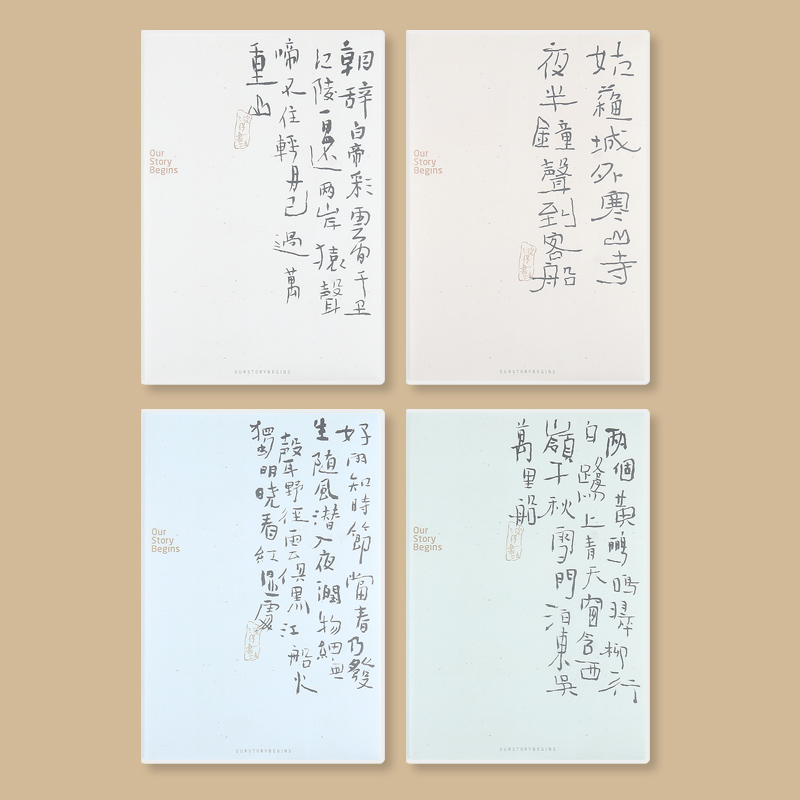 朝辞白帝彩雲间千里
江陵一日还两岸猿聲
啼不住輕舟已過萬
重山
Our
Story
Begins
OURSTORYBEGINS
姑蘇城外寒山寺
夜半鐘聲到客船
Our
Story
Begins
OURSTORYBEGINS
好雨知時節當春乃發
生随風潜入夜潤物細無
聲野徑雲俱黑江船火
獨明晓看紅湿處
Our
Story
Begins
OURSTORYBEGINS
两個黃鸝鳴翠柳行
白鷺上青天窗含西
嶺千秋雪門泊東吳
萬里船
Our
Story
Begins
OURSTORYBEGINS